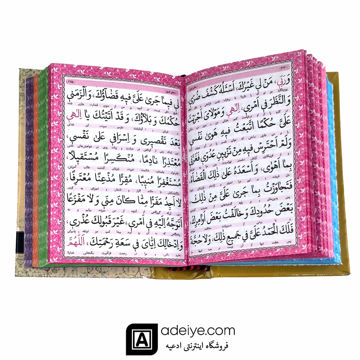 وَرَبّي، مَنْ لي غَيْرُكَ، اَسْئَلُهُ كَشْفَ ضُرّي
وَالنَّظَرَ في اَمْري، اِلهي وَمَوْلايَ اَجْرَيْتَ
عَلَيَّ حُكْمًا اتَّبَعْتُ فيهِ هَوى نَفْسي
وَلَمْ اَحْتَرِسْ فيهِ مِنْ تَزْيينِ عَدُوّي، فَغَرَّني
بِما اَهْوى، وَاَسْعَدَهُ عَلى ذلِكَ الْقَضآءُ
فَتَجاوَزْتُ بِما جَرى عَلَيَّ مِنْ ذلِكَ
بَعْضَ حُدُودِكَ، وَخالَفْتُ بَعْضَ اَوامِرِكَ
فَلَكَ الْحَمْدُ عَلَيَّ في جَميعِ ذلِكَ، وَلا حُجَّةَ
لي فيما جَرى عَلَيَّ فيهِ قَضآؤُكَ، وَاَلْزَمَني
حُكْمُكَ وَبَلاؤُكَ، وَقَدْ اَتَيْتُكَ يا اِلهي
بَعْدَ تَقْصيري وَاِسْرافي عَلى نَفْسي
مُعْتَذِرًا نادِمًا، مُنْكَسِرًا مُسْتَقيلاً
مُسْتَغْفِرًا مُنيبًا، مُقِرًّا مُذْعِنًا مُعْتَرِفًا
لا اَجِدُ مَفَرًّا مِمّا كانَ مِنّي، وَلا مَفْزَعًا
اَتَوَجَّهُ اِلَيْهِ في اَمْري، غَيْرَ قَبُولِكَ عُذْري
وَاِدْخالِكَ اِيّايَ في سَعَةِ رَحْمَتِكَ، اَللّهُمَّ
adeiye.com
فروشگاه اینترنتی ادعیه